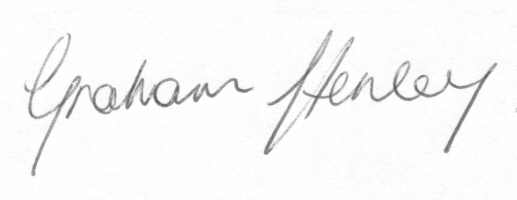 Graham Henley